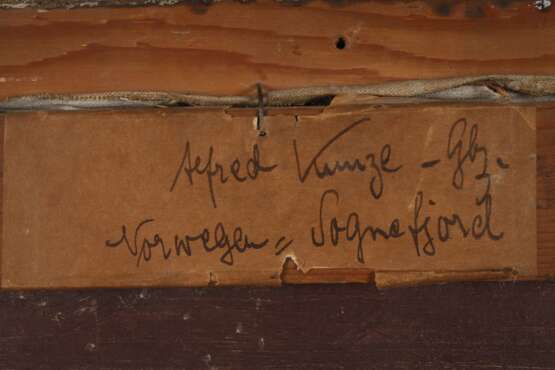 Alfred Kunze - Gbz.
Norwegen = Sognefjord